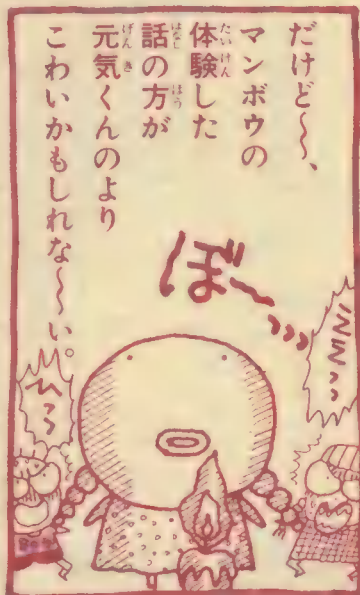 だけど〜〜、
マンボウの
体験した
話の方が
元気くんのより
こわいかもしれな〜〜い。
ぼ〜